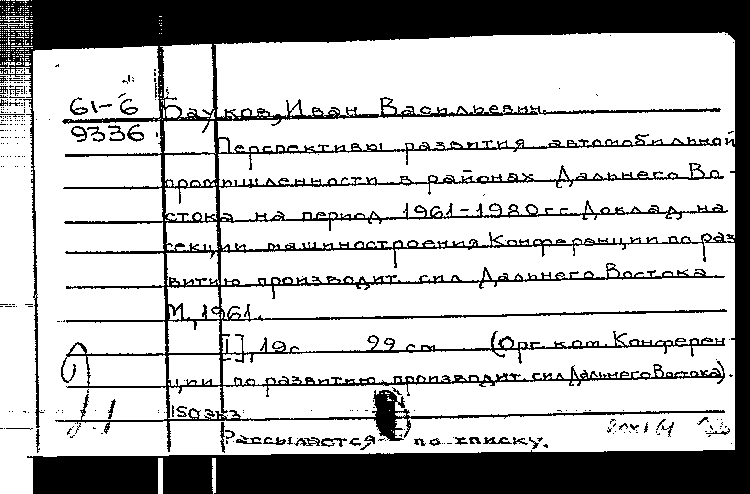 61-6 Бауков, Иван Васильевич.
9336
Перспективы развития автомобильной
промышленности в районах Дальнего Во-
стока на период 1961-1980 гг. Доклад на
секции машиностроения Конференции по раз
витию производит. сил Дальнего Востока
М., 1961.
[I], 19с 22 см (Орг. ком. Конферен-
ции по развитию производит. сил Дальнего Востока).
150 экз
Рассылается по списку.